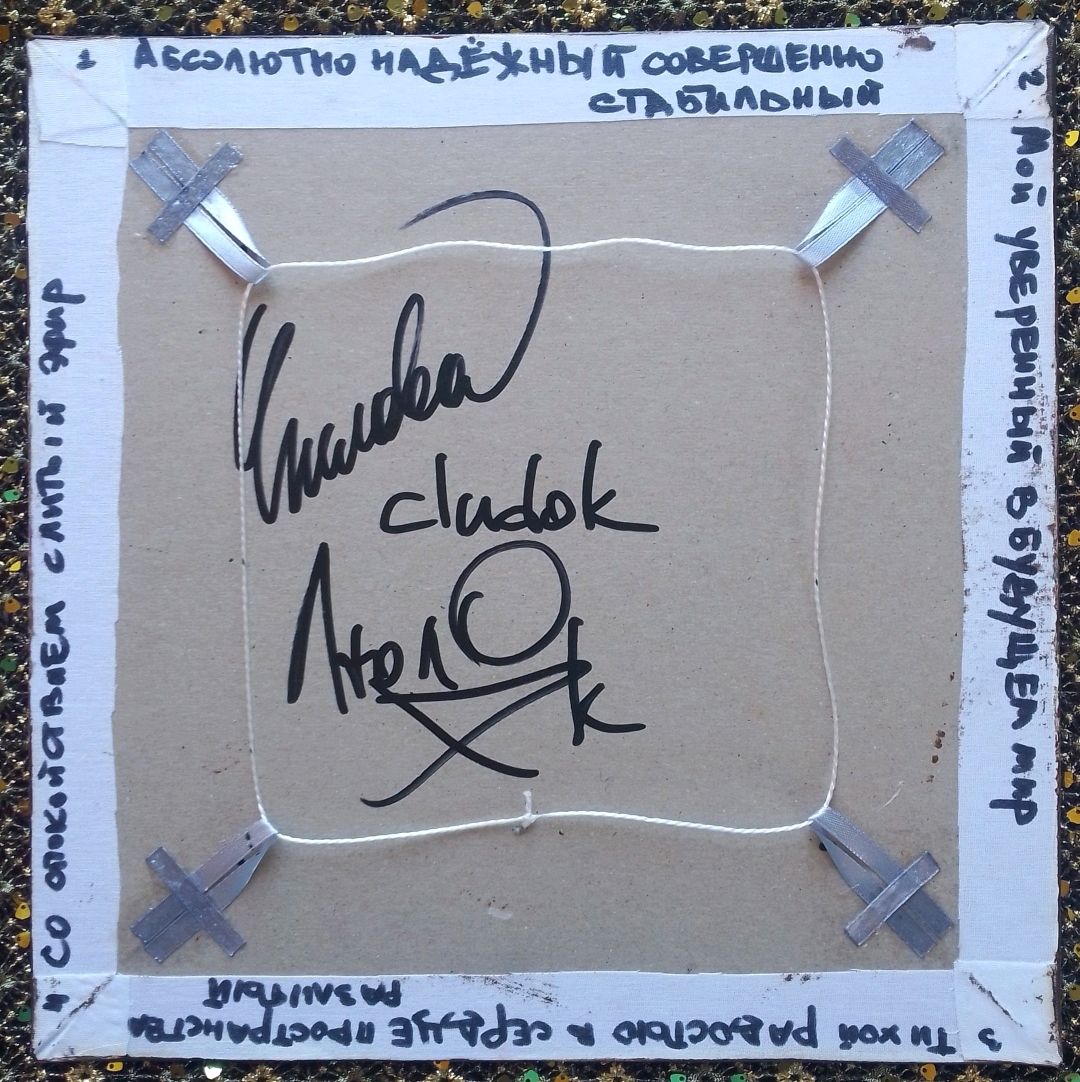 1 Абсолютно надёжный совершенно
стабильный
2. Мой уверенный в будущем мир
3 Тихой радостью в сердце пространства
разлитый
4 Со спокойствием слитый эфир
cludok